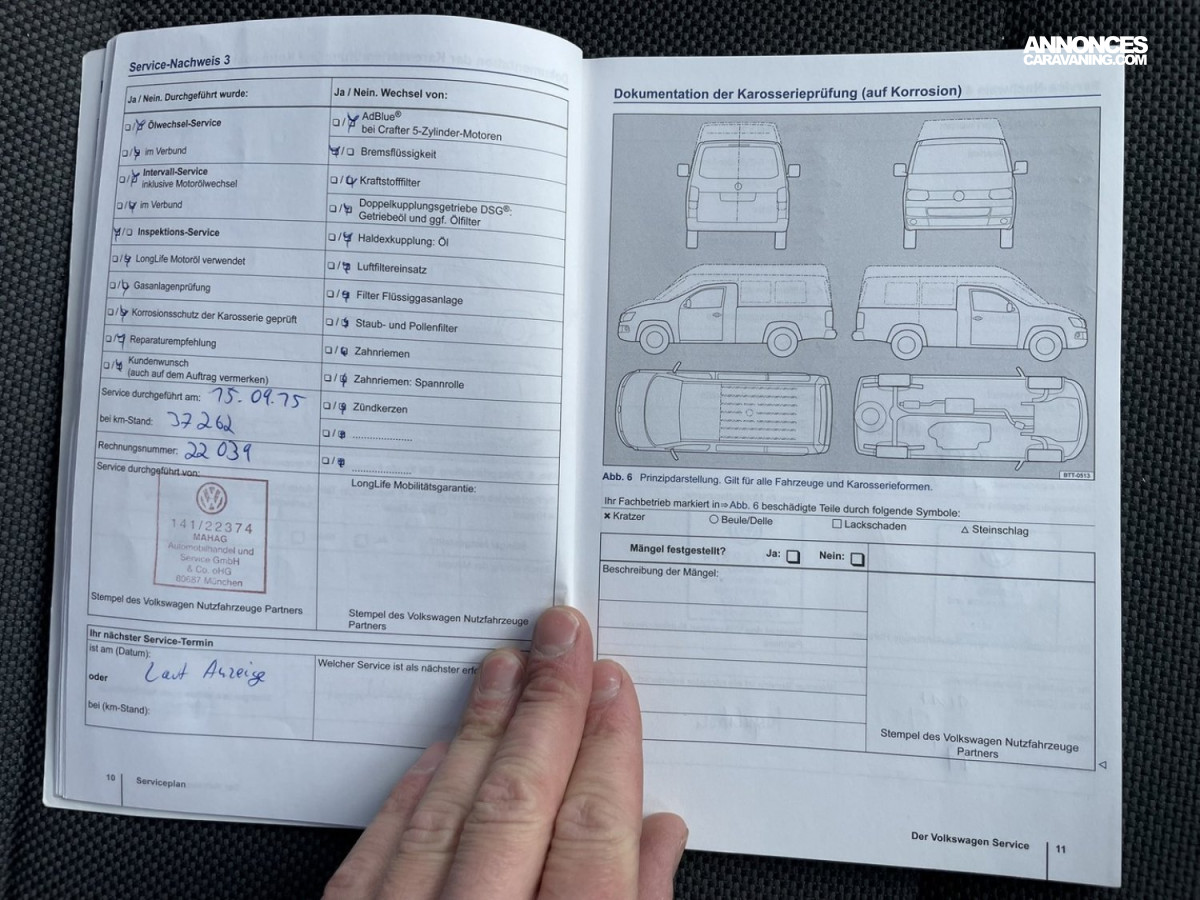 ANNONCES
CARAVANING.COM
Service-Nachweis 3
Ja / Nein. Durchgeführt wurde:
❑ / ❑ Ölwechsel-Service
❑ / ❑ im Verbund
❑ / ❑ Intervall-Service
inklusive Motorölwechsel
❑ / ❑ im Verbund
❑ / ❑ Inspektions-Service
❑ / ❑ LongLife Motoröl verwendet
❑ / ❑ Gasanlagenprüfung
❑ / ❑ Korrosionsschutz der Karosserie geprüft
❑ / ❑ Reparaturempfehlung
❑ / ❑ Kundenwunsch
(auch auf dem Auftrag vermerken)
Service durchgeführt am: 15.09.15
bei km-Stand: 37262
Rechnungsnummer: 22 039
Service durchgeführt von:
141/22374
MAHAG
Automobilhandel und
Service GmbH
& Co. oHG
80687 München
Stempel des Volkswagen Nutzfahrzeuge Partners
Ja / Nein. Wechsel von:
❑ / ❑ AdBlue®
bei Crafter 5-Zylinder-Motoren
❑ / ❑ Bremsflüssigkeit
❑ / ❑ Kraftstofffilter
❑ / ❑ Doppelkupplungsgetriebe DSG®:
Getriebeöl und ggf. Ölfilter
❑ / ❑ Haldexkupplung: Öl
❑ / ❑ Luftfiltereinsatz
❑ / ❑ Filter Flüssiggasanlage
❑ / ❑ Staub- und Pollenfilter
❑ / ❑ Zahnriemen
❑ / ❑ Zahnriemen: Spannrolle
❑ / ❑ Zündkerzen
❑ / ❑ ....................
❑ / ❑ ....................
LongLife Mobilitätsgarantie:
Stempel des Volkswagen Nutzfahrzeuge
Partners
Ihr nächster Service-Termin
ist am (Datum):
oder Laut Anzeige
bei (km-Stand):
Welcher Service ist als nächster
10 Serviceplan
Dokumentation der Karosserieprüfung (auf Korrosion)
BTT-0513
Abb. 6 Prinzipdarstellung. Gilt für alle Fahrzeuge und Karosserieformen.
Ihr Fachbetrieb markiert in ⇒ Abb. 6 beschädigte Teile durch folgende Symbole:
✕ Kratzer ○ Beule/Delle □ Lackschaden △ Steinschlag
Mängel festgestellt? Ja: ❑ Nein: ❑
Beschreibung der Mängel:
Stempel des Volkswagen Nutzfahrzeuge
Partners
Der Volkswagen Service 11